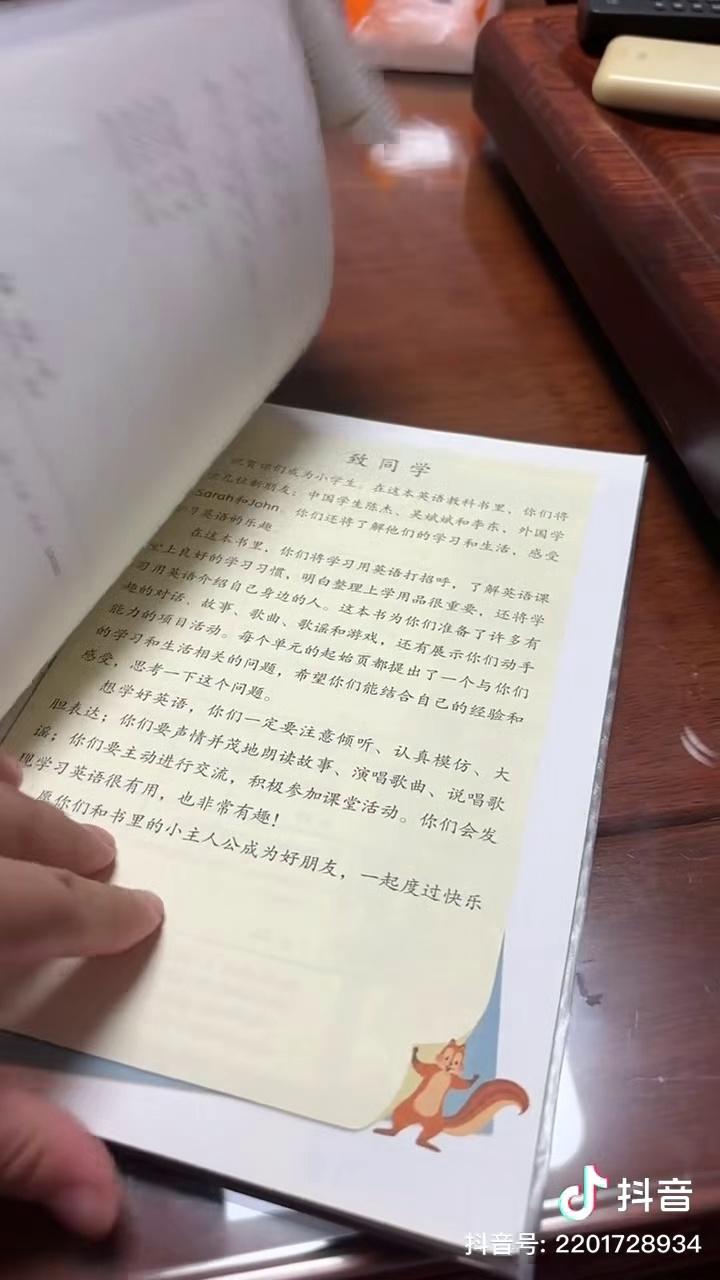 致同学
你们成为小学生。在这本英语教科书里，你们将
几位新朋友：中国学生陈杰、吴斌斌和李东，外国学
Sarah和John。你们还将了解他们的学习和生活，感受
习英语的乐趣。
在这本书里，你们将学习用英语打招呼，了解英语课
上良好的学习习惯，明白整理上学用品很重要，还将学
习用英语介绍自己身边的人。这本书为你们准备了许多有
趣的对话、故事、歌曲、歌谣和游戏，还有展示你们动手
能力的项目活动。每个单元的起始页都提出了一个与你们
的学习和生活相关的问题，希望你们能结合自己的经验和
感受，思考一下这个问题。
想学好英语，你们一定要注意倾听、认真模仿、大
胆表达；你们要声情并茂地朗读故事、演唱歌曲、说唱歌
谣；你们要主动进行交流，积极参加课堂活动。你们会发
现学习英语很有用，也非常有趣！
愿你们和书里的小主人公成为好朋友，一起度过快乐
抖音
抖音号: 2201728934